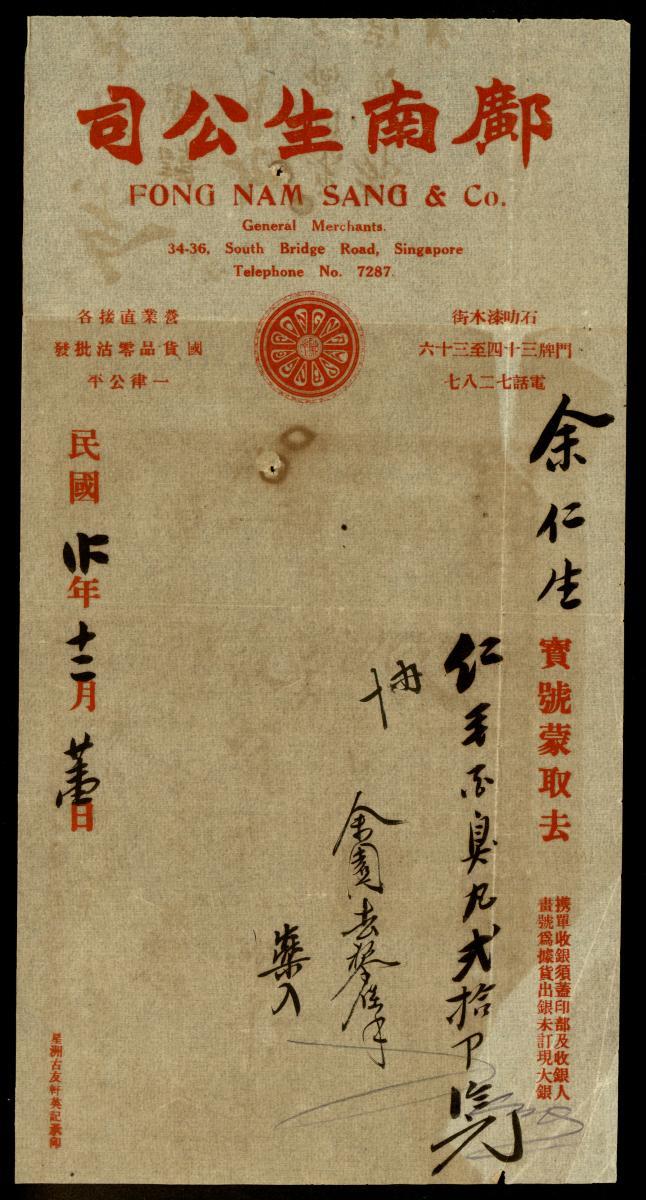 鄺南生公司
FONG NAM SANG & Co.
General Merchants.
34-36, South Bridge Road, Singapore
Telephone No. 7287.
石叻漆木街
門牌三十四至三十六
電話七二八七
營業直接各
國貨品零沽批發
一律公平
余仁生 寶號蒙取去
携單收銀須蓋印部及收銀人
畫號爲據貨出銀未訂現大銀
丸弍拾
余
去
藥入
民國 年十二月 日
星洲古友軒英記承印